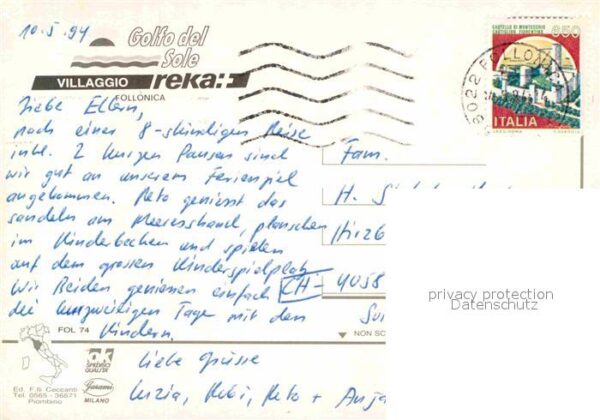 10.5.94
Golfo del
Sole
VILLAGGIO reka:
FOLLONICA
Liebe Eltern,
nach einer 8-stündigen Reise
inkl. 2 kurzen Pausen sind
wir gut an unserem Ferienziel
angekommen. Reto geniesst das
sandeln am Meeresstrand, planschen
im Kinderbecken und spielen
auf dem grossen Kinderspielplatz
Wir Beiden geniessen einfach
die kurzweiligen Tage mit den
Kindern.
Liebe Grüsse
Reto + Anja
CASTELLO DI MONTECCHIO
CASTIGLION FIORENTINO
650
ITALIA
Fam.
H.
Hirzb
CH-4058
FOL 74
NON SC
Ed. F.lli Ceccanti
Tel. 0565-36571
Piombino
MILANO
privacy protection
Datenschutz